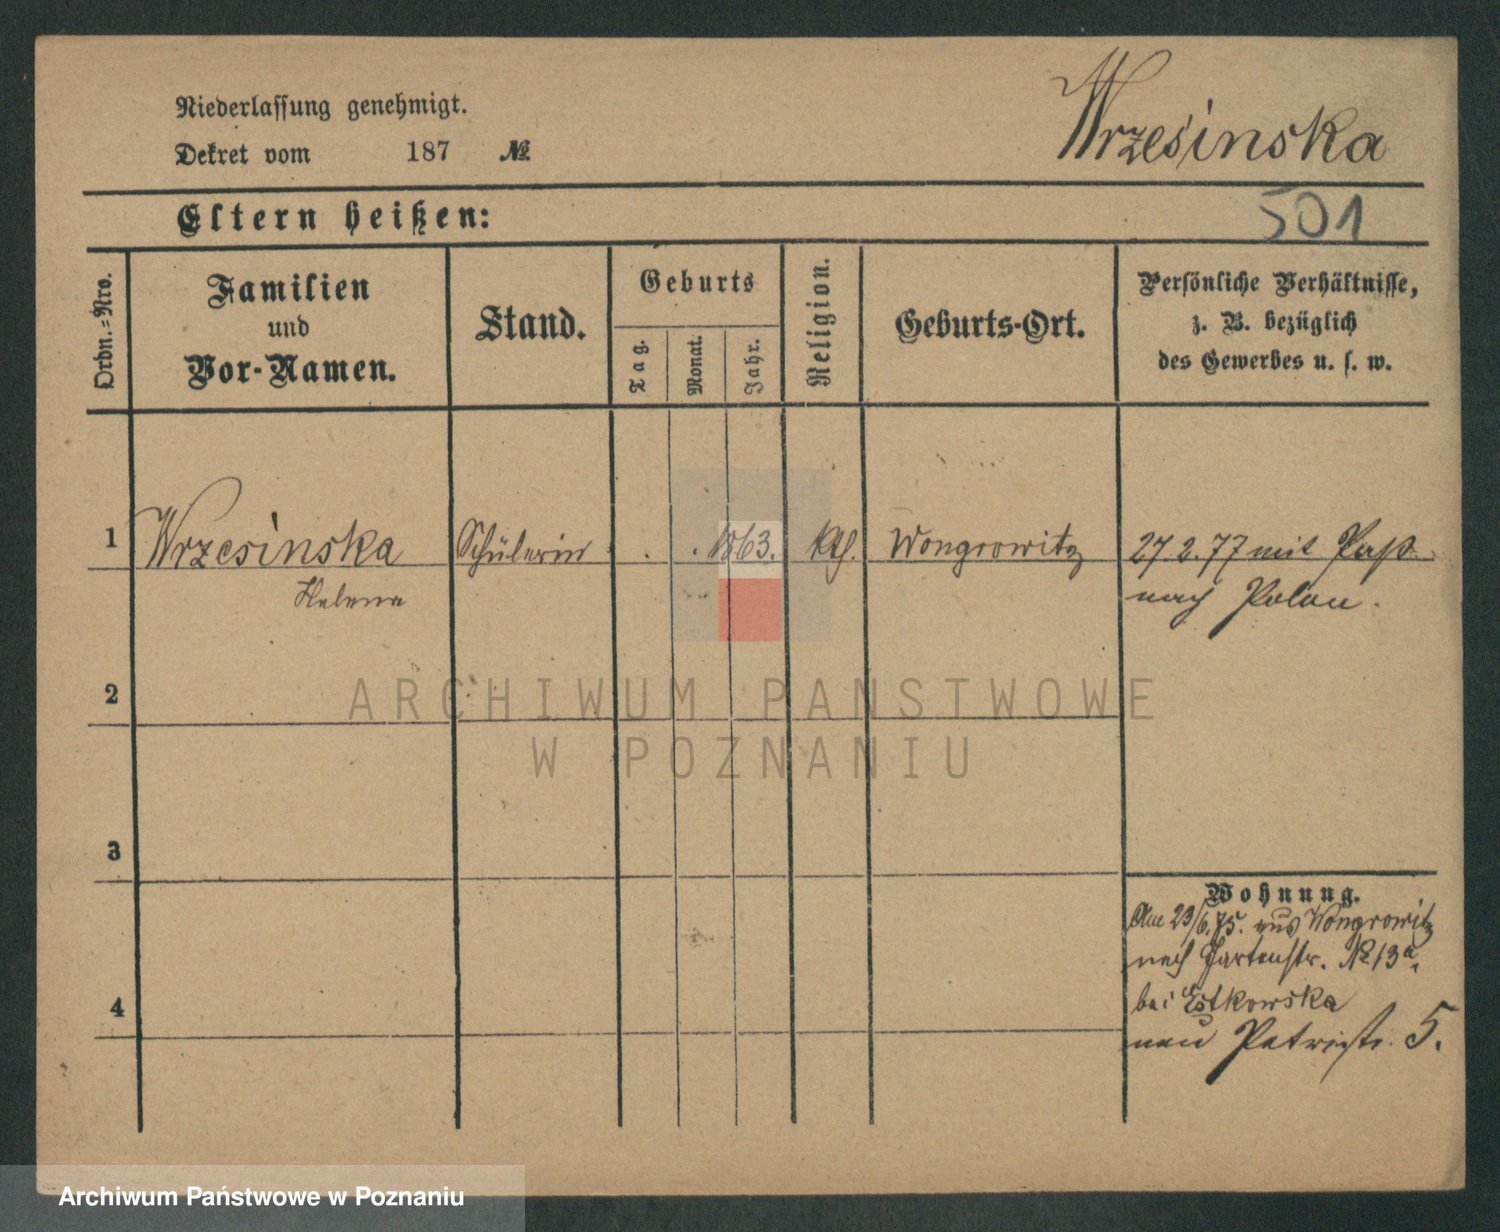 Niederlassung genehmigt.
Wrzesinska
Dekret vom 187 №
Eltern heißen:
501
Ordn.=Nro.
Familien
und
Vor-Namen.
Stand.
Geburts
Tag.
Monat.
Jahr.
Religion.
Geburts-Ort.
Persönliche Verhältnisse,
z. B. bezüglich
des Gewerbes u. s. w.
1 Wrzesinska Schülerin . . 1863. kth. Wongrowitz 27.2.77 mit Paß
Helena nach Polen.
2
3
4
Wohnung.
Am 23/6.75. aus Wongrowitz
nach Gartenstr. № 13a,
bei Estkowska
neu Petristr. 5.
ARCHIWUM PANSTWOWE
W POZNANIU
Archiwum Państwowe w Poznaniu